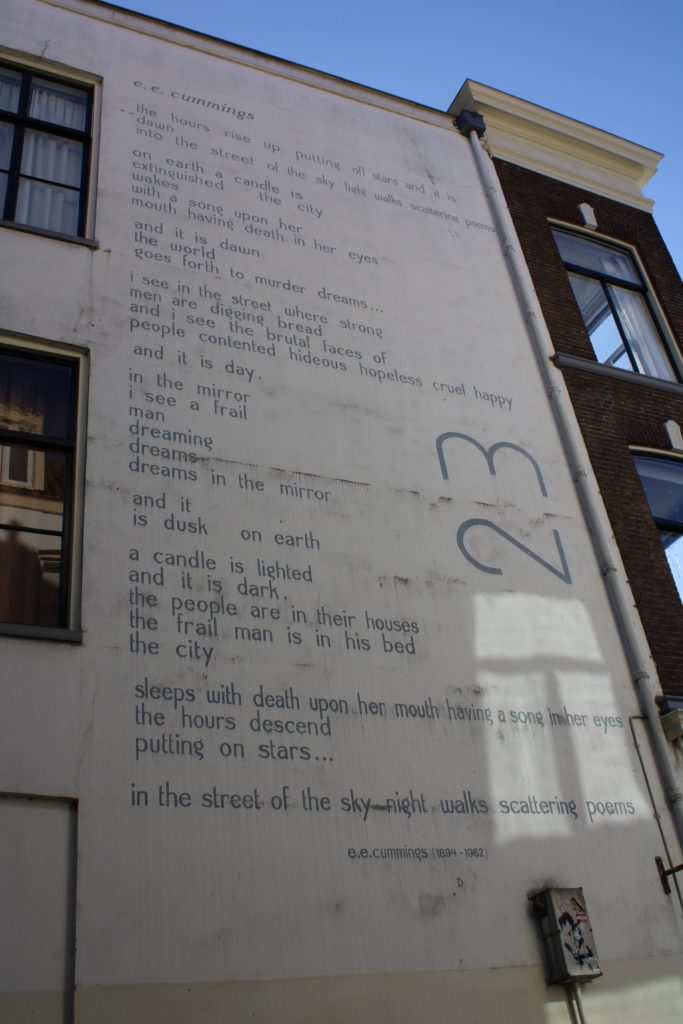 e. e. cummings
the hours rise up putting off stars and it is
dawn
into the street of the sky light walks scattering poems
on earth a candle is
extinguished the city
wakes
with a song upon her
mouth having death in her eyes
and it is dawn
the world
goes forth to murder dreams...
i see in the street where strong
men are digging bread
and i see the brutal faces of
people contented hideous hopeless cruel happy
and it is day.
in the mirror
i see a frail
man
dreaming
dreams
dreams in the mirror
and it
is dusk on earth
a candle is lighted
and it is dark.
the people are in their houses
the frail man is in his bed
the city
sleeps with death upon her mouth having a song in her eyes
the hours descend
putting on stars...
in the street of the sky night walks scattering poems
e.e.cummings (1894-1962)
23